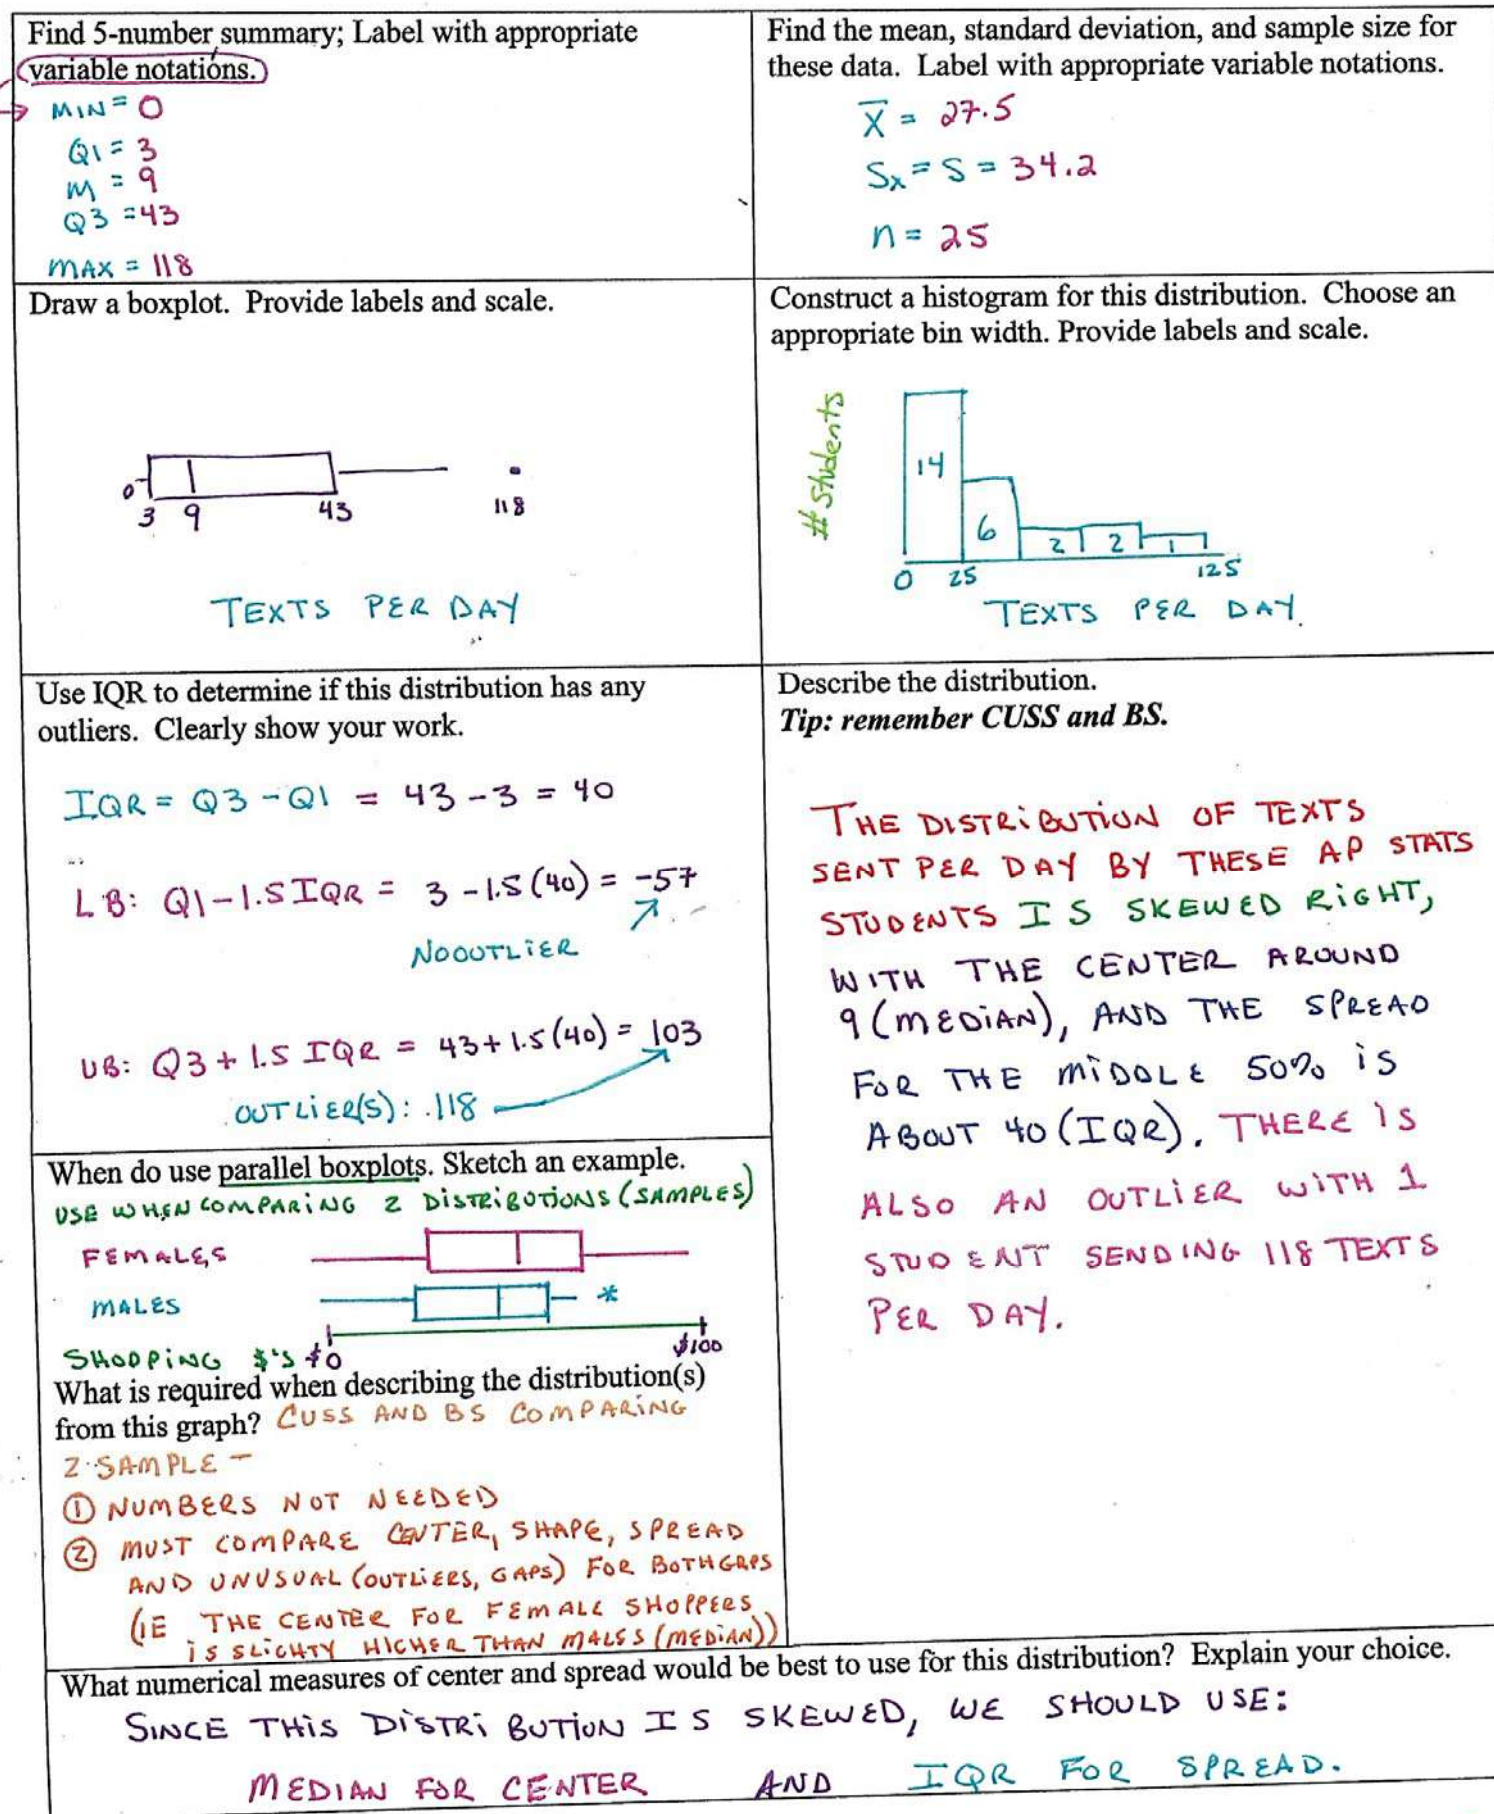 Find 5-number summary; Label with appropriate
variable notations.
MIN = 0
Q1 = 3
M = 9
Q3 = 43
MAX = 118
Find the mean, standard deviation, and sample size for
these data. Label with appropriate variable notations.
x̄ = 27.5
Sx = S = 34.2
n = 25
Draw a boxplot. Provide labels and scale.
0
3 9 43 118
TEXTS PER DAY
Construct a histogram for this distribution. Choose an
appropriate bin width. Provide labels and scale.
# Students
14
6
2 2 1
0 25 125
TEXTS PER DAY.
Use IQR to determine if this distribution has any
outliers. Clearly show your work.
IQR = Q3 - Q1 = 43 - 3 = 40
LB: Q1 - 1.5 IQR = 3 - 1.5 (40) = -57
NO OUTLIER
UB: Q3 + 1.5 IQR = 43 + 1.5 (40) = 103
OUTLIER(S): 118
Describe the distribution.
Tip: remember CUSS and BS.
THE DISTRIBUTION OF TEXTS
SENT PER DAY BY THESE AP STATS
STUDENTS IS SKEWED RIGHT,
WITH THE CENTER AROUND
9 (MEDIAN), AND THE SPREAD
FOR THE MIDDLE 50% IS
ABOUT 40 (IQR). THERE IS
ALSO AN OUTLIER WITH 1
STUDENT SENDING 118 TEXTS
PER DAY.
When do use parallel boxplots. Sketch an example.
USE WHEN COMPARING 2 DISTRIBUTIONS (SAMPLES)
FEMALES
MALES *
SHOPPING $'S $0 $100
What is required when describing the distribution(s)
from this graph? CUSS AND BS COMPARING
2 SAMPLE -
① NUMBERS NOT NEEDED
② MUST COMPARE CENTER, SHAPE, SPREAD
AND UNUSUAL (OUTLIERS, GAPS) FOR BOTH GRPS
(IE THE CENTER FOR FEMALE SHOPPERS
IS SLIGHTY HIGHER THAN MALES (MEDIAN))
What numerical measures of center and spread would be best to use for this distribution? Explain your choice.
SINCE THIS DISTRIBUTION IS SKEWED, WE SHOULD USE:
MEDIAN FOR CENTER AND IQR FOR SPREAD.